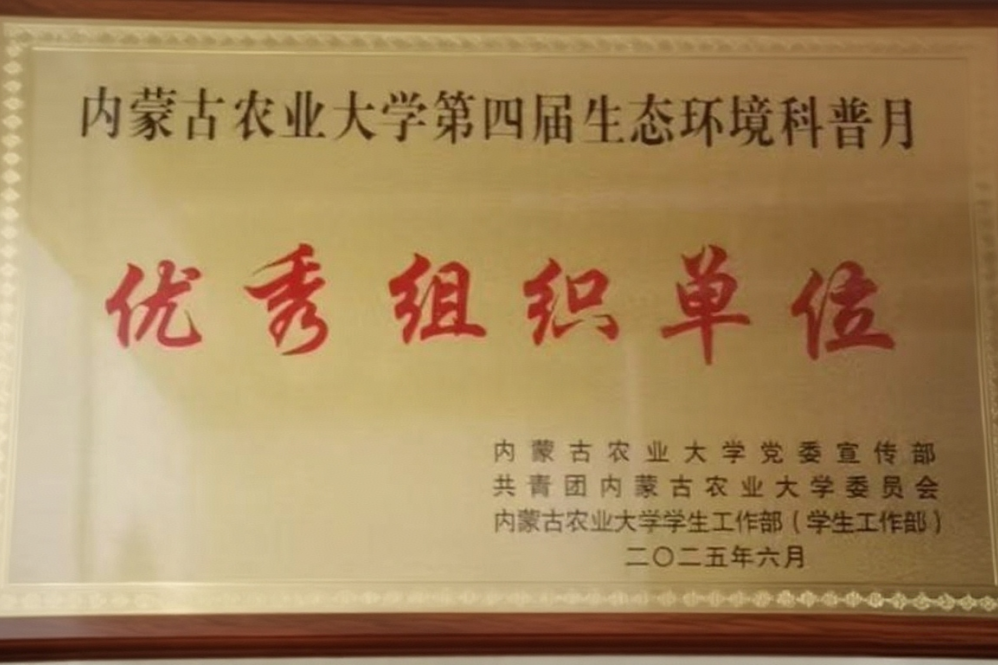 内蒙古农业大学第四届生态环境科普月
优秀组织单位
内蒙古农业大学党委宣传部
共青团内蒙古农业大学委员会
内蒙古农业大学学生工作部（学生工作部）
二〇二五年六月